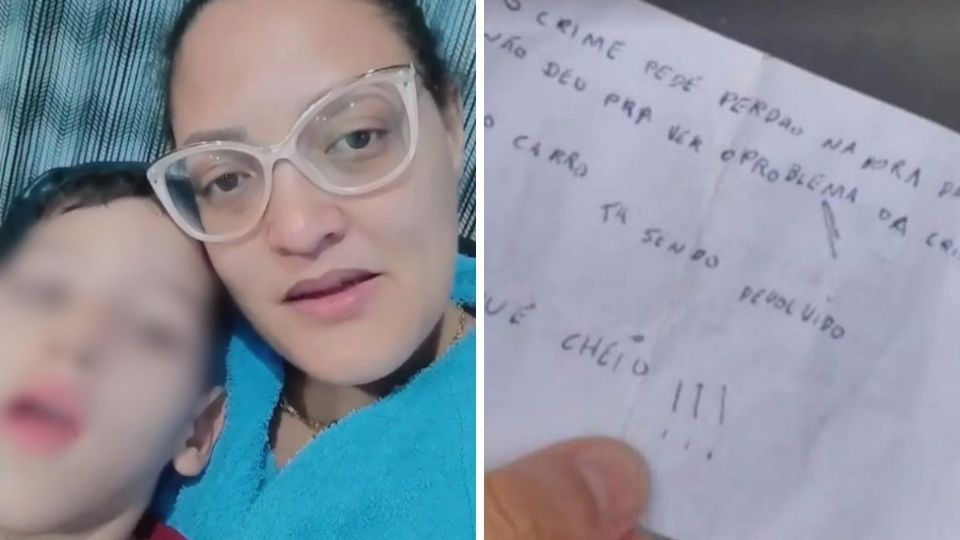 O CRIME PEDE PERDAO NA HORA DA
NÃO DEU PRA VER O PROBLEMA DA CRI
O CARRO
TÁ SENDO DEVOLVIDO
CHEIO !!!